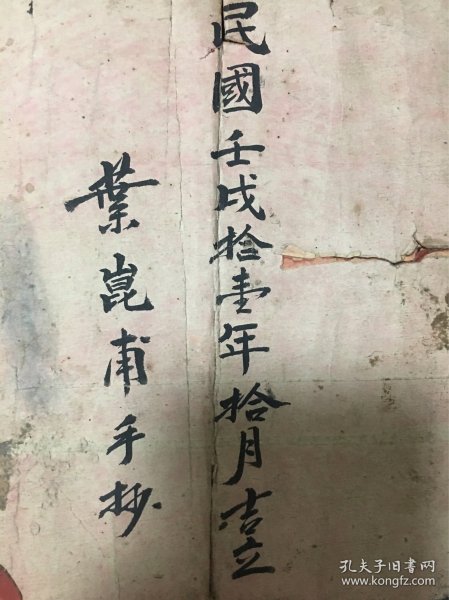 民國壬戌拾壹年拾月吉立
葉崑甫手抄
孔夫子旧书网
www.kongfz.com